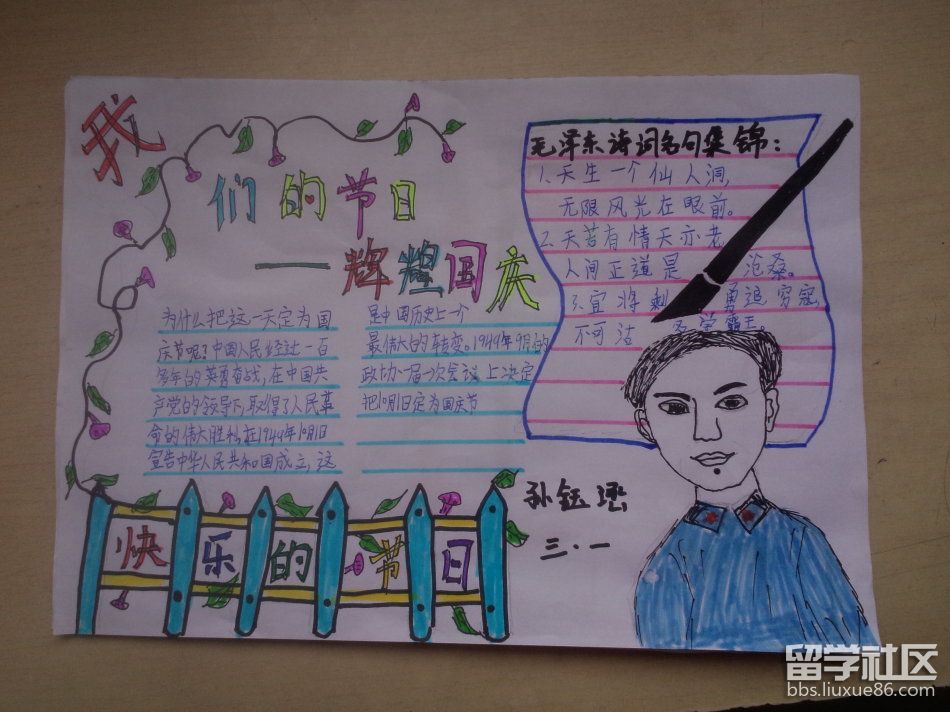 我
们的节日
——辉煌国庆
为什么把这一天定为国
庆节呢?中国人民经过一百
多年的英勇奋战,在中国共
产党的领导下,取得了人民革
命的伟大胜利,在1949年10月1日
宣告中华人民共和国成立,这
是中国历史上一个
最伟大的转变。1949年9月的
政协一届一次会议上决定
把10月1日定为国庆节
毛泽东诗词名句集锦:
1.天生一个仙人洞,
无限风光在眼前。
2.天若有情天亦老
人间正道是沧桑。
3.宜将剩勇追穷寇
不可沽名学霸王。
孙钰
三·一
快乐的节日
留学社区
bbs.liuxue86.com